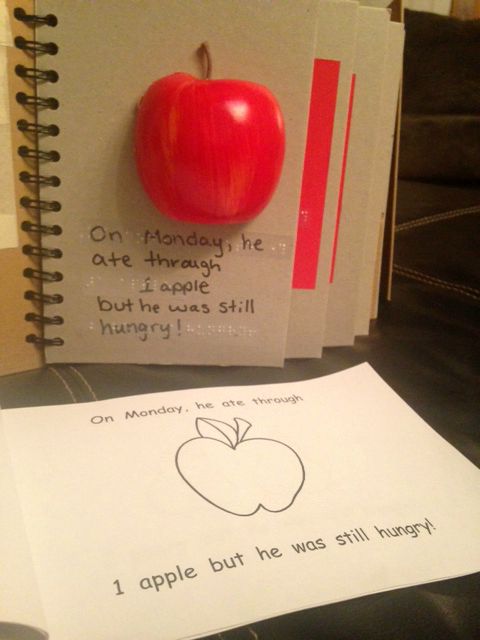 On Monday, he
ate through
1 apple
but he was still
hungry!
On Monday, he ate through
1 apple but he was still hungry!